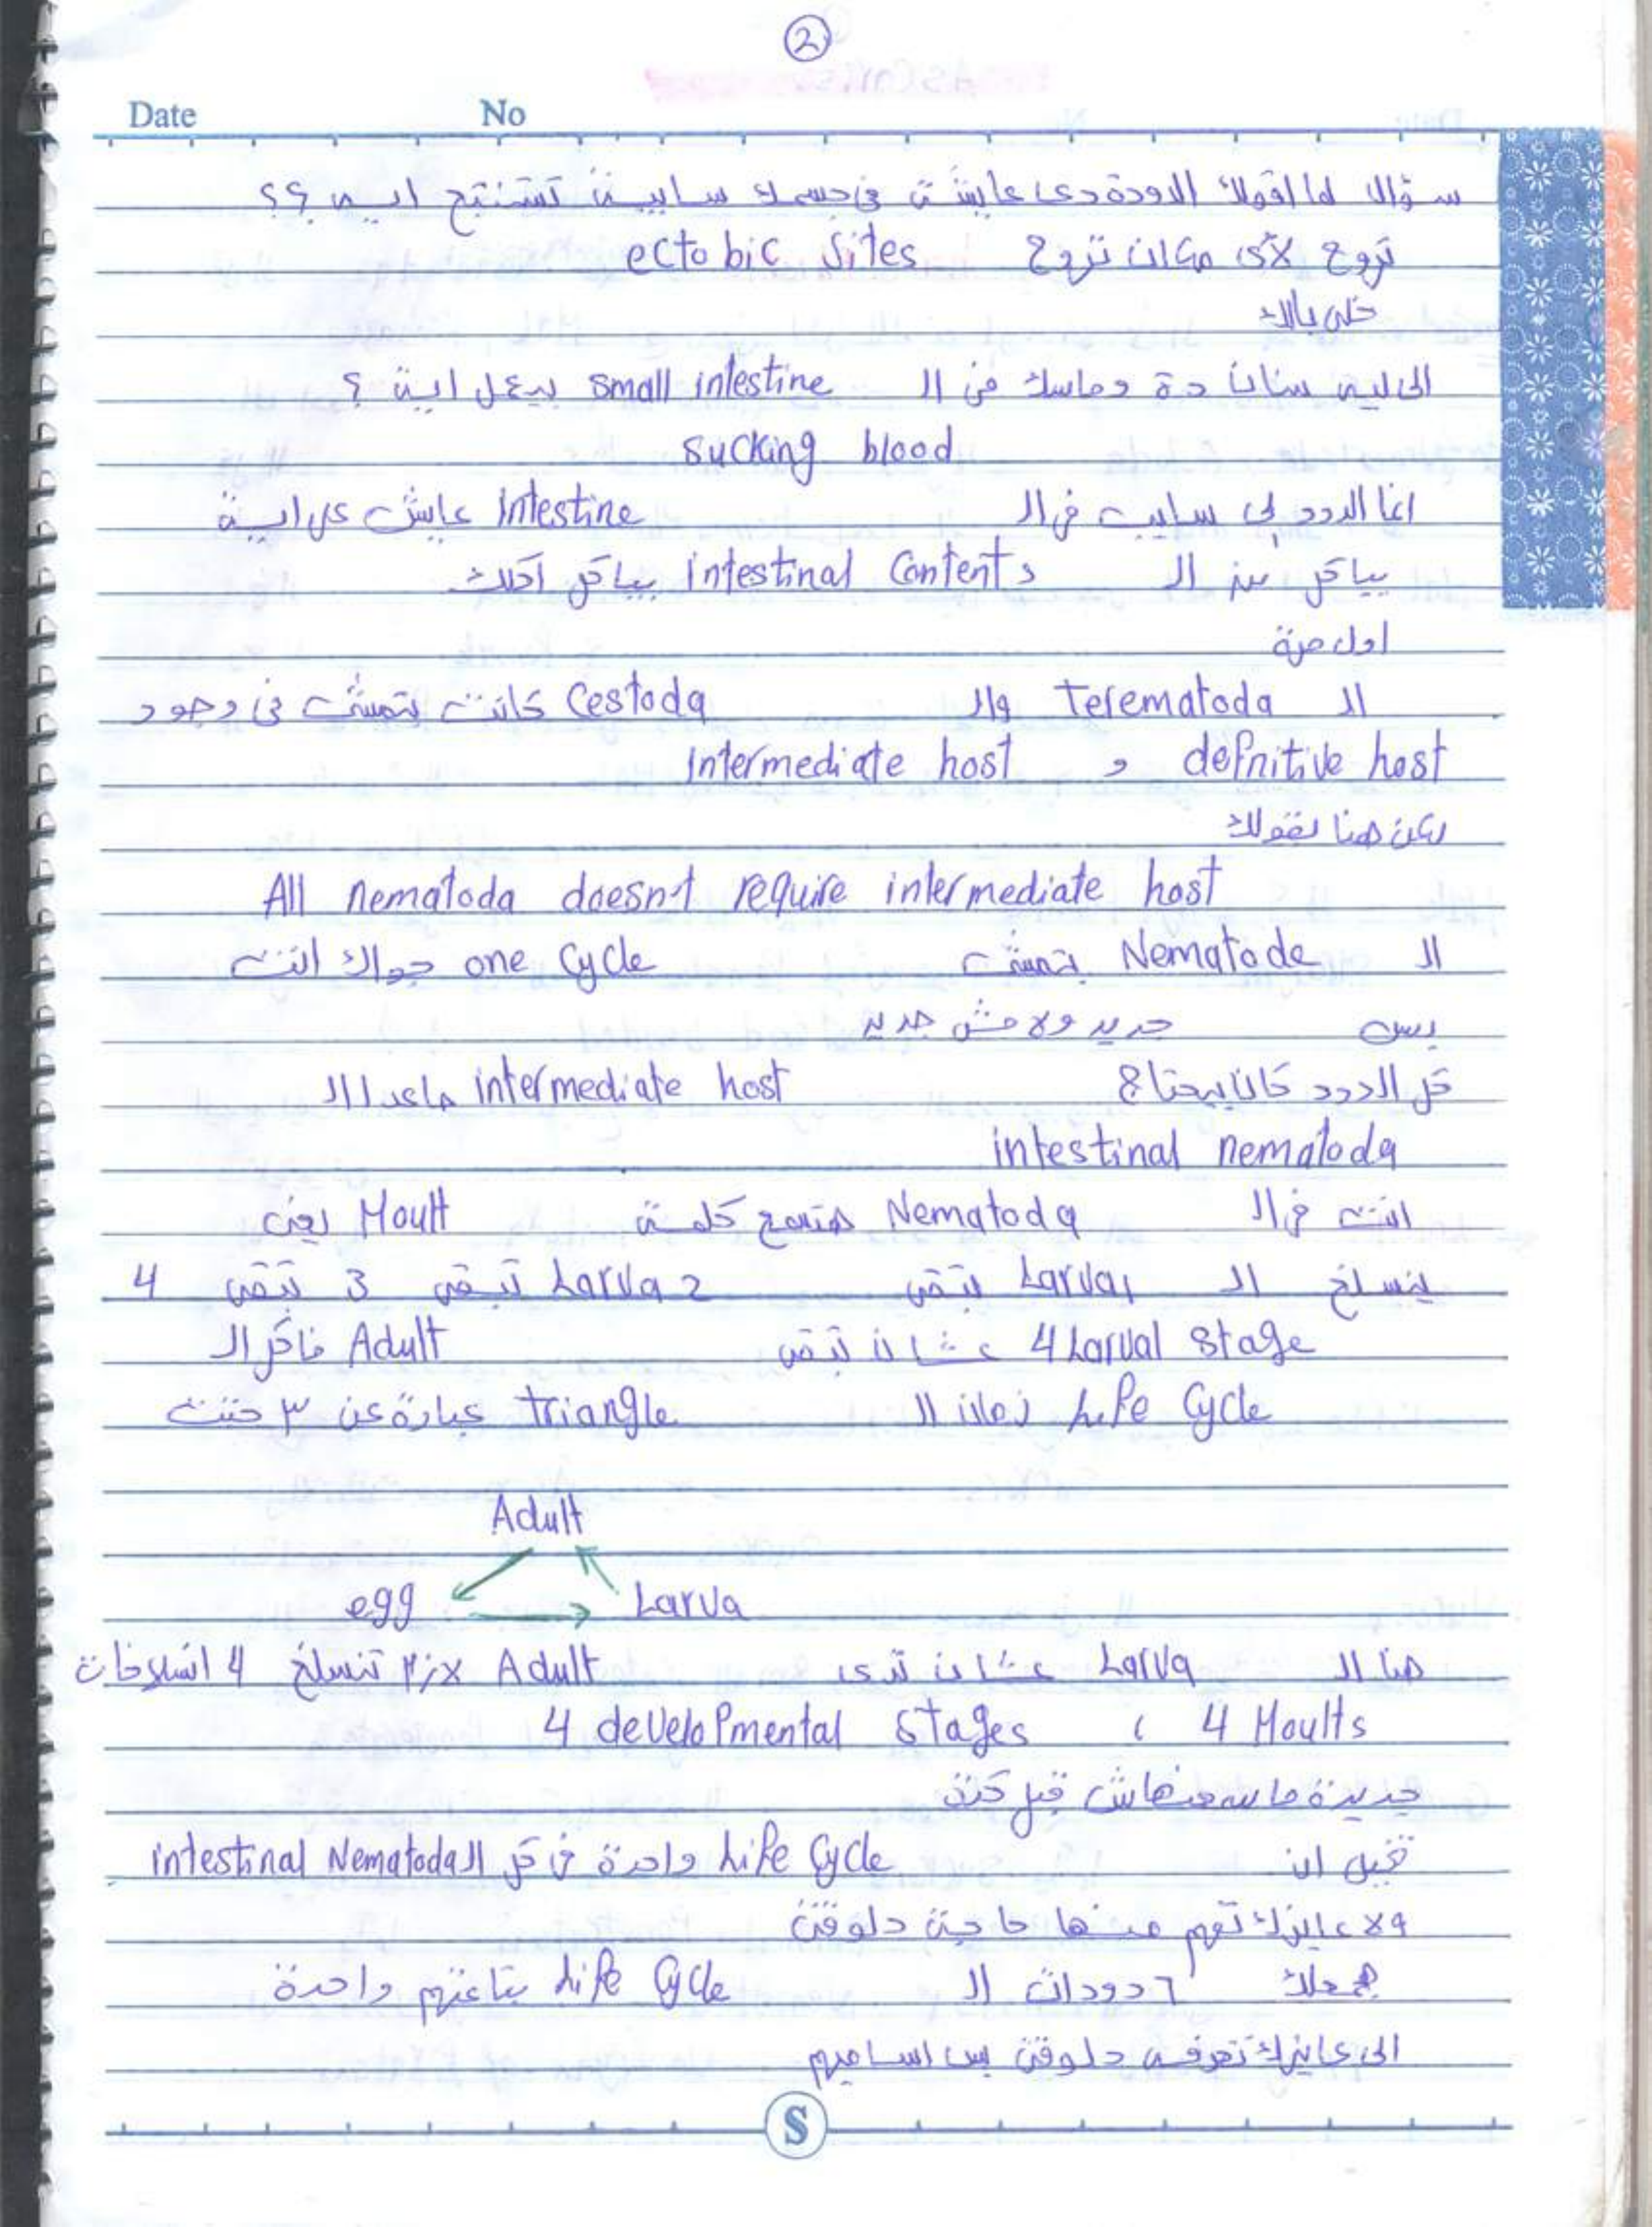 2
Date No
سؤال لما اقولك الدودة دى عايشة فى جسمك سايبة تستنتج ايه ؟؟
تروح لأى مكان تروح ectobic sites
خلى بالك
الى ليه سنان دة وماسك فى الـ small intestine بيعمل اية ؟
sucking blood
اما الدود لى سايب فى الـ Intestine عايش على اية
بياكل من الـ intestinal Contents بياكل اكلك
اول مرة
الـ Terematoda والـ Cestoda كانت بتمشى فى وجود
definitive host و Intermediate host
لكن هنا نقولك
All nematoda doesn't require intermediate host
الـ Nematode بتمشى one cycle جواك انت
بس جديد ولا مش جديد
كل الدود كان بيحتاج intermediate host ماعدا الـ
intestinal nematoda
انت فى الـ Nematoda هتسمع كلمة Moult يعنى
ينسلخ الـ Larva1 تبقى Larva 2 تبقى 3 تبقى 4
4 Larval stage عشان تبقى Adult فاكر الـ
Life Cycle زمان الـ triangle عبارة عن ٣ حتت
Adult
egg Larva
هنا الـ Larva عشان تدى Adult لازم تنسلخ 4 انسلاخات
4 Moults ، 4 developmental stages
جديدة ما سمعنهاش قبل كدة
تخيل ان Life Cycle واحدة فى كل الـ intestinal Nematoda
ولا عايزك تفهم منها حاجة دلوقتى
معاك ٦ دودات الـ Life Cycle بتاعتهم واحدة
الى عايزك تعرفه دلوقتى بس اساميهم
S